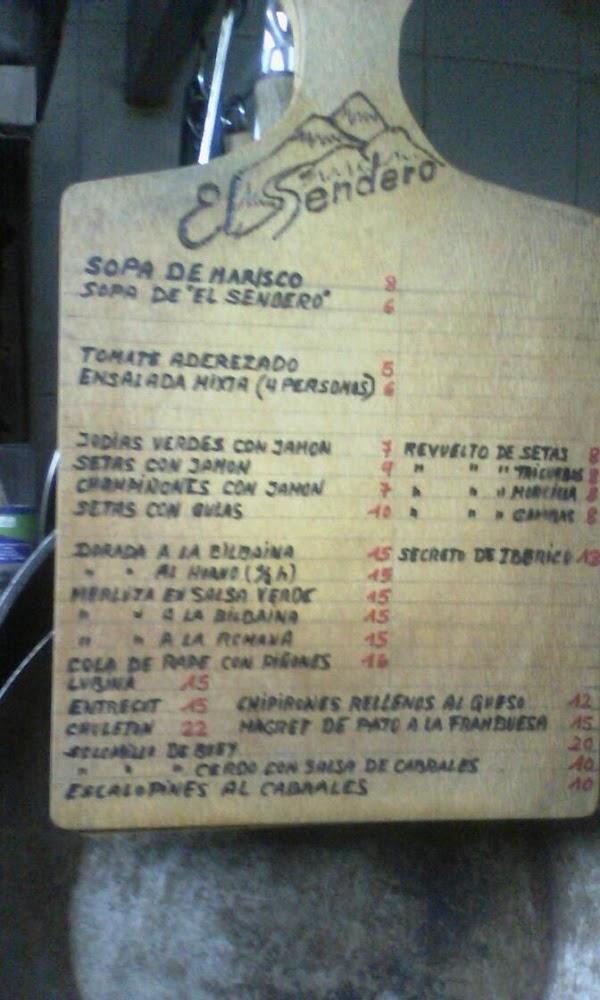 El Sendero
SOPA DE MARISCO 8
SOPA DE "EL SENDERO" 6
TOMATE ADEREZADO 5
ENSALADA MIXTA (4 PERSONAS) 6
JUDIAS VERDES CON JAMON 7 REVUELTO DE SETAS 8
SETAS CON JAMON 9 " " " TRIGUEROS 8
CHAMPIÑONES CON JAMON 7 " " " MORCILLA 8
SETAS CON GULAS 10 " " " GAMBAS 8
DORADA A LA BILBAINA 15 SECRETO DE IBERICO 13
" " AL HORNO (½ h) 15
MERLUZA EN SALSA VERDE 15
" " A LA BILBAINA 15
" " A LA ROMANA 15
COLA DE RAPE CON PIÑONES 16
LUBINA 15
ENTRECOT 15 CHIPIRONES RELLENOS AL QUESO 12
CHULETON 22 MAGRET DE PATO A LA FRAMBUESA 15
SOLOMILLO DE BUEY 20
" " " CERDO CON SALSA DE CABRALES 10
ESCALOPINES AL CABRALES 10